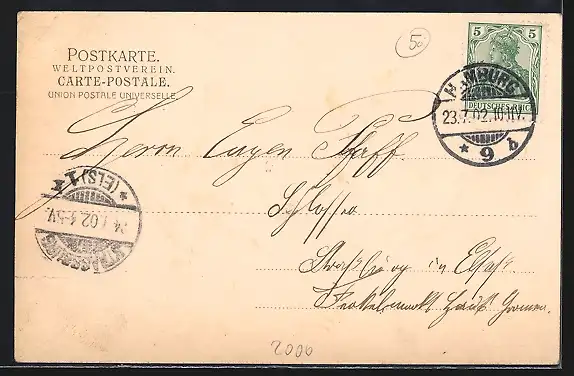 POSTKARTE.
WELTPOSTVEREIN.
CARTE-POSTALE.
UNION POSTALE UNIVERSELLE
50
5 5
DEUTSCHES REICH
HAMBURG
23.7.02.10-11V.
* 9 b
Herrn Eugen Pfaff.
Schlosser
STRASSBURG
(ELS) 1
Strassburg in Elsass
Ferkelsmarkt Haus
2000